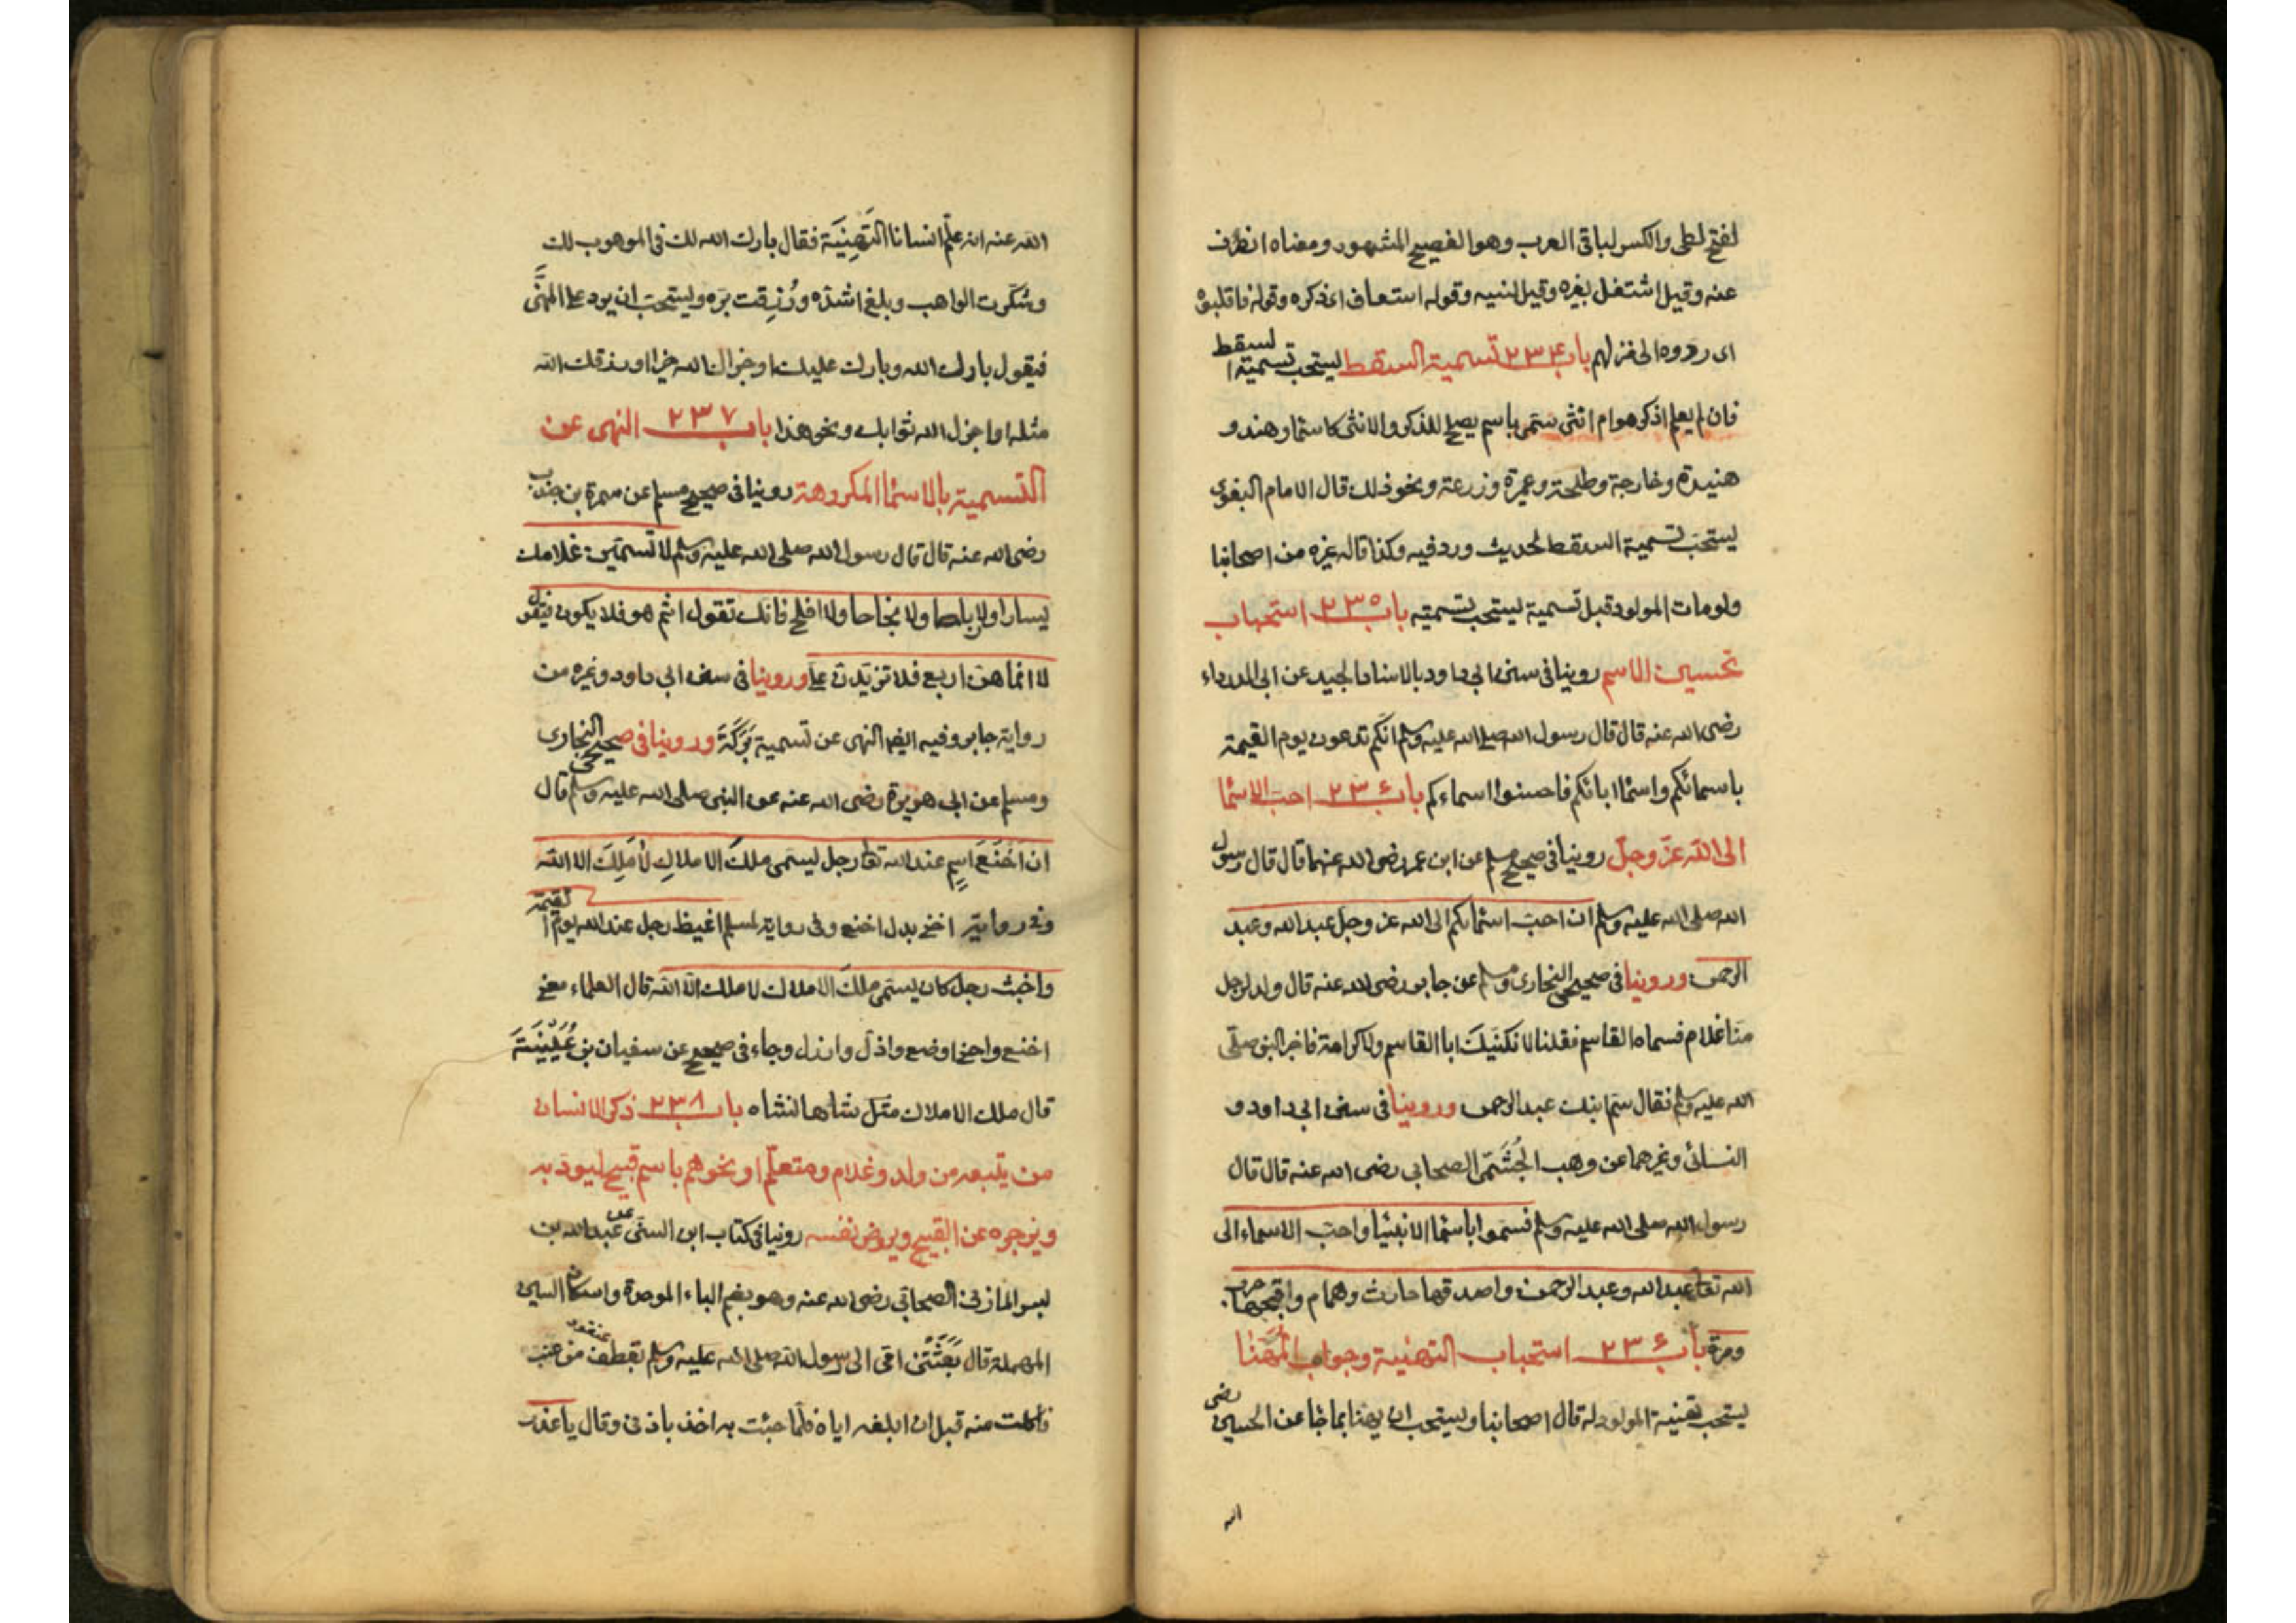 لفتح لطى والكسر لباقى العرب وهو الفصيح المشهور ومعناه انصرف
عنه وقيل اشتغل بغيره وقيل لنسيه وقوله استعاف اى ذكره وقوله فاقلبوه
اى ردوه الى منزلهم باب ٢٣٤ تسمية السقط ليستحب تسمية السقط
فان لم يعلم اذكر هو ام انثى ستمى باسم يصلح للذكر والانثى كاسمار وهند و
هنيدة وخارجة وطلحة وعميرة وزرعة ونحو ذلك قال الامام البغوى
يستحب تسمية السقط لحديث ورد فيه وكذا قاله غيره من اصحابنا
ولو مات المولود قبل تسمية ليستحب تسمته باب ٢٣٥ استحباب
تحسين الاسم روينا فى سنن ابى داود بالاسناد الجيد عن ابى الدرداء
رضى الله عنه قال قال رسول الله صلى الله عليه وسلم انكم تدعون يوم القيمة
باسمائكم واسما ابائكم فاحسنوا اسماءكم باب ٢٣٤ احب الاسما
الى الله عز وجل روينا فى صحيح مسلم عن ابن عمر رضى الله عنهما قال قال رسول
الله صلى الله عليه وسلم ان احب اسمائكم الى الله عز وجل عبد الله وعبد
الرحمن وروينا فى صحيحى البخارى ومسلم عن جابر رضى الله عنه قال ولد لرجل
منا غلام فسماه القاسم فقلنا لا نكنيك ابا القاسم ولا كرامة فاخبر النبى صلى
الله عليه وسلم فقال سم ابنك عبد الرحمن وروينا فى سنن ابى داود و
النسائى وغيرهما عن وهب الجُشَمى الصحابى رضى الله عنه قال قال
رسول الله صلى الله عليه وسلم تسموا باسما الانبيا واحب الاسماء الى
الله تعا عبد الله وعبد الرحمن واصدقها حارث وهمام واقبحها حرب
ومرة باب ٢٣٤ استحباب التهنية وجواب المُهَنَّا
يستحب تهنية المولود له قال اصحابنا وليستحب ان يهنا بما جا عن الحسين رضى
الله
الله عنه انه علّم انسانا التَهنِيَة فقال بارك الله لك فى الموهوب لك
وشكرت الواهب وبلغ اشده ورُزِقت بره وليستحب ان يرد على المهنَّى
فيقول بارك الله وبارك عليك او جزاك الله خيرا او رزقك الله
مثله او اجزل الله ثوابك ونحو هذا باب ٢٣٧ النهى عن
التسمية بالاسما المكروهة روينا فى صحيح مسلم عن سمرة بن جندب
رضى الله عنه قال قال رسول الله صلى الله عليه وسلم لا تسمين غلامك
يسارا ولا رباحا ولا نجاحا ولا افلح فانك تقول اثم هو فلا يكون فيقول
لا انما هن اربع فلا تزيدن علىّ وروينا فى سنن ابى داود وغيره من
رواية جابر وفيه ايضا النهى عن تسمية بَرَكَة وروينا فى صحيحى البخارى
ومسلم عن ابى هريرة رضى الله عنه عن النبى صلى الله عليه وسلم قال
ان اَخنَعَ اسمٍ عند الله تعا رجل ليسمى ملكَ الاملاكِ لا مَلِكَ الا الله
وفى رواية اخنى بدل اخنع وفى رواية لمسلم اغيظ رجل عند الله يوم القيمة
واخبث رجل كان يسمى ملك الاملاك لا ملك الا الله قال العلماء معنى
اخنع واخنى اوضع واذل وارذل وجاء فى صحيح عن سفيان بن عُيَيْنَةَ
قال ملك الاملاك مثل شاهانشاه باب ٢٣٨ ذكر الانسان
من يتبعه من ولد وغلام ومتعلّم او نحوهم باسم قبيح ليودبه
ويزجره عن القبيح ويروض نفسه روينا فى كتاب ابن السنى عن عبد الله بن
بسر المازنى الصحابى رضى الله عنه وهو بضم الباء الموحدة واسكان السين
المهملة قال بَعَثَتنى امى الى رسول الله صلى الله عليه وسلم بقطف من عنب
فاكلت منه قبل ان ابلغه اياه فلما جئت به اخذ باذنى وقال يا غدر